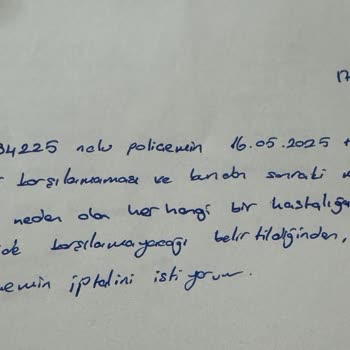 17
34225 nolu policemin 16.05.2025 t
karşılamaması ve bundan sonraki
neden olan her hangi bir hastalığı
karşılamayacağı belirtildiğinden,
iptalini istiyorum.